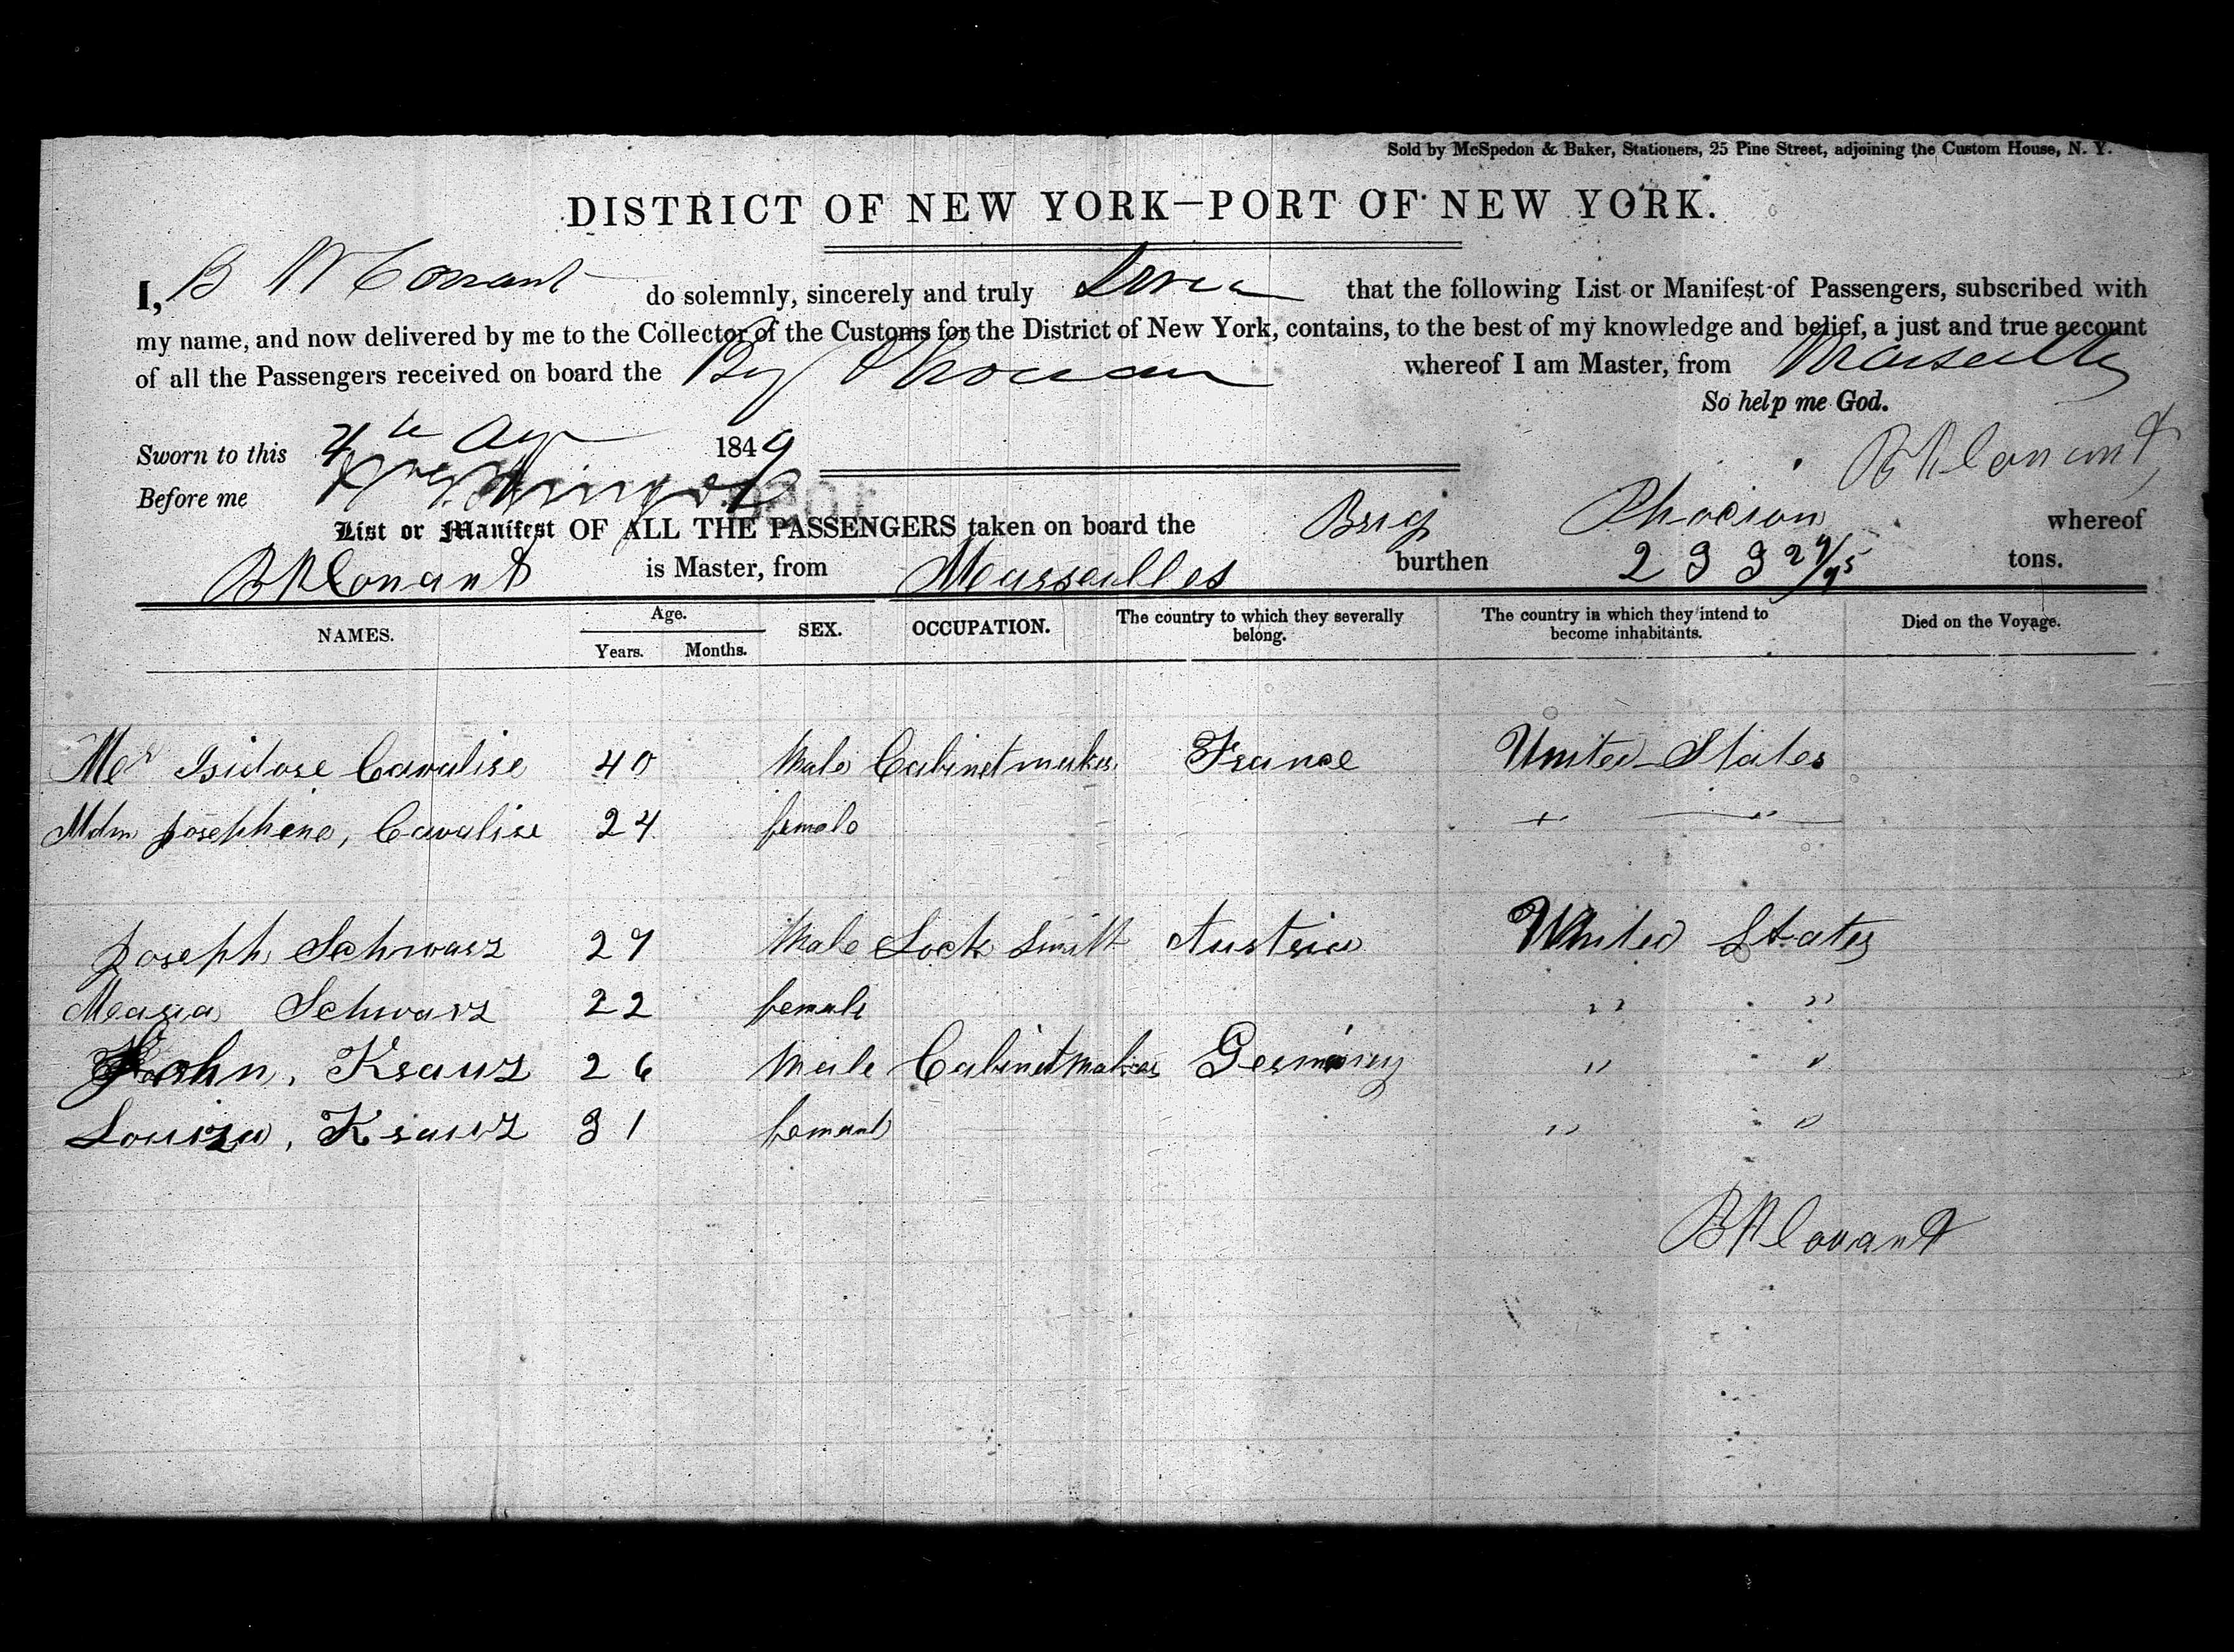 Sold by McSpedon & Baker, Stationers, 25 Pine Street, adjoining the Custom House, N. Y.
DISTRICT OF NEW YORK—PORT OF NEW YORK.
I, B Conant do solemnly, sincerely and truly Swear that the following List or Manifest of Passengers, subscribed with
my name, and now delivered by me to the Collector of the Customs for the District of New York, contains, to the best of my knowledge and belief, a just and true account
of all the Passengers received on board the Brig Phocion whereof I am Master, from Marseilles
So help me God.
Sworn to this 4th 1849
Before me
Conant
List or Manifest OF ALL THE PASSENGERS taken on board the Brig Phocion whereof
Conant is Master, from Marseilles burthen 233 24/95 tons.
NAMES. Age. Years. Months. SEX. OCCUPATION. The country to which they severally belong. The country in which they intend to become inhabitants. Died on the Voyage.
Mer Isidore Cavalise 40 Male Cabinetmaker France United States
Mdm Josephine, Cavalise 24 female " "
Joseph Schwarz 27 Male Lock Smith Austria United States
Maria Schwarz 22 female " "
John, Kraus 26 Male Cabinetmaker Germany " "
Louisa, Kraus 31 female " "
Conant